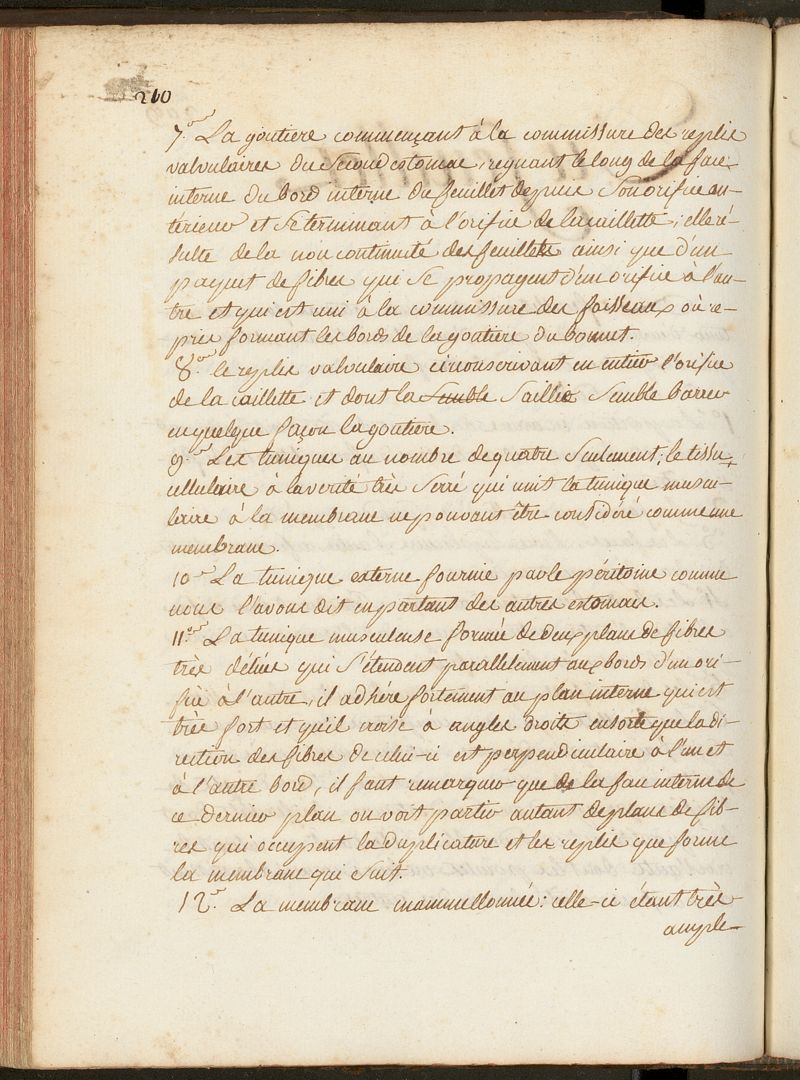 210
7.° La goutiere commençant à la commissure des replis
valvulaires du Second estomac, regnant le long de la face
interne du bord interne du feuillet depuis Son orifice an-
terieur et Se terminant à l'orifice de la caillette, elle ré-
sulte de la non continuité des feuillets ainsi que d'un
paquet de fibres qui Se propagent d'un orifice à l'au-
tre et qui est uni à la commissure des faisseaux où re-
plis formant les bords de la goutiere du bonnet.
8.° le replis valvulaire circonscrivant en entier l'orifice
de la caillette et dont la Semble Saillie Semble barrer
en quelque façon la goutiere.
9.° Les tuniques au nombre de quatre Seulement; le tissu
cellulaire à la verité très Serré qui unit la tunique muscu-
laire à la membrane ne pouvant être consideré comme une
membrane.
10.° La tunique externe fournie par le péritoine comme
nous l'avons dit en parlant des autres estomacs.
11.° La tunique musculeuse formée de deux plans de fibres
très déliés qui S'étendent parallelement aux bords d'un ori-
fice à l'autre, il adhére fortement au plan interne qui est
très fort et qu'il croise à angles droits ensorte que la di-
rection des fibres de celui-ci est perpendiculaire à l'un et
à l'autre bord, il faut remarquer que de la face interne de
ce dernier plan on voit partir autant de plans de fib-
res qui occupent la duplicature et les replis que forme
la membrane qui Suit.
12.° La membrane mammellonnée: celle-ci étant très
ample